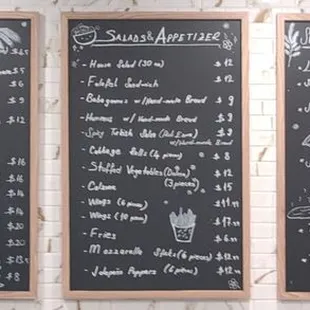 SALADS & APPETIZER
- House Salad (30 oz) $ 12
- Falafel Sandwich $ 12
- Babaganous w/Hand-made Bread $ 9
- Hummus w/Hand-made Bread $ 9
- Spicy Turkish Salsa $ 9
w/Hand-made Bread
- Cabbage Rolls (4 pieces) $ 8
- Stuffed Vegetables (Dolma) $ 12
- Calzone (3 pieces) $ 15
- Wings (6 pieces) $ 11
- Wings (10 pieces) $ 17
- Fries $ 6
- Mozzarella Sticks (6 pieces) $ 12
- Jalapeño Poppers (6 pieces) $ 12
$ 6
$ 9
$ 12
$ 16
$ 14
$ 16
$ 14
$ 20
$ 20
$ 13
$ 8